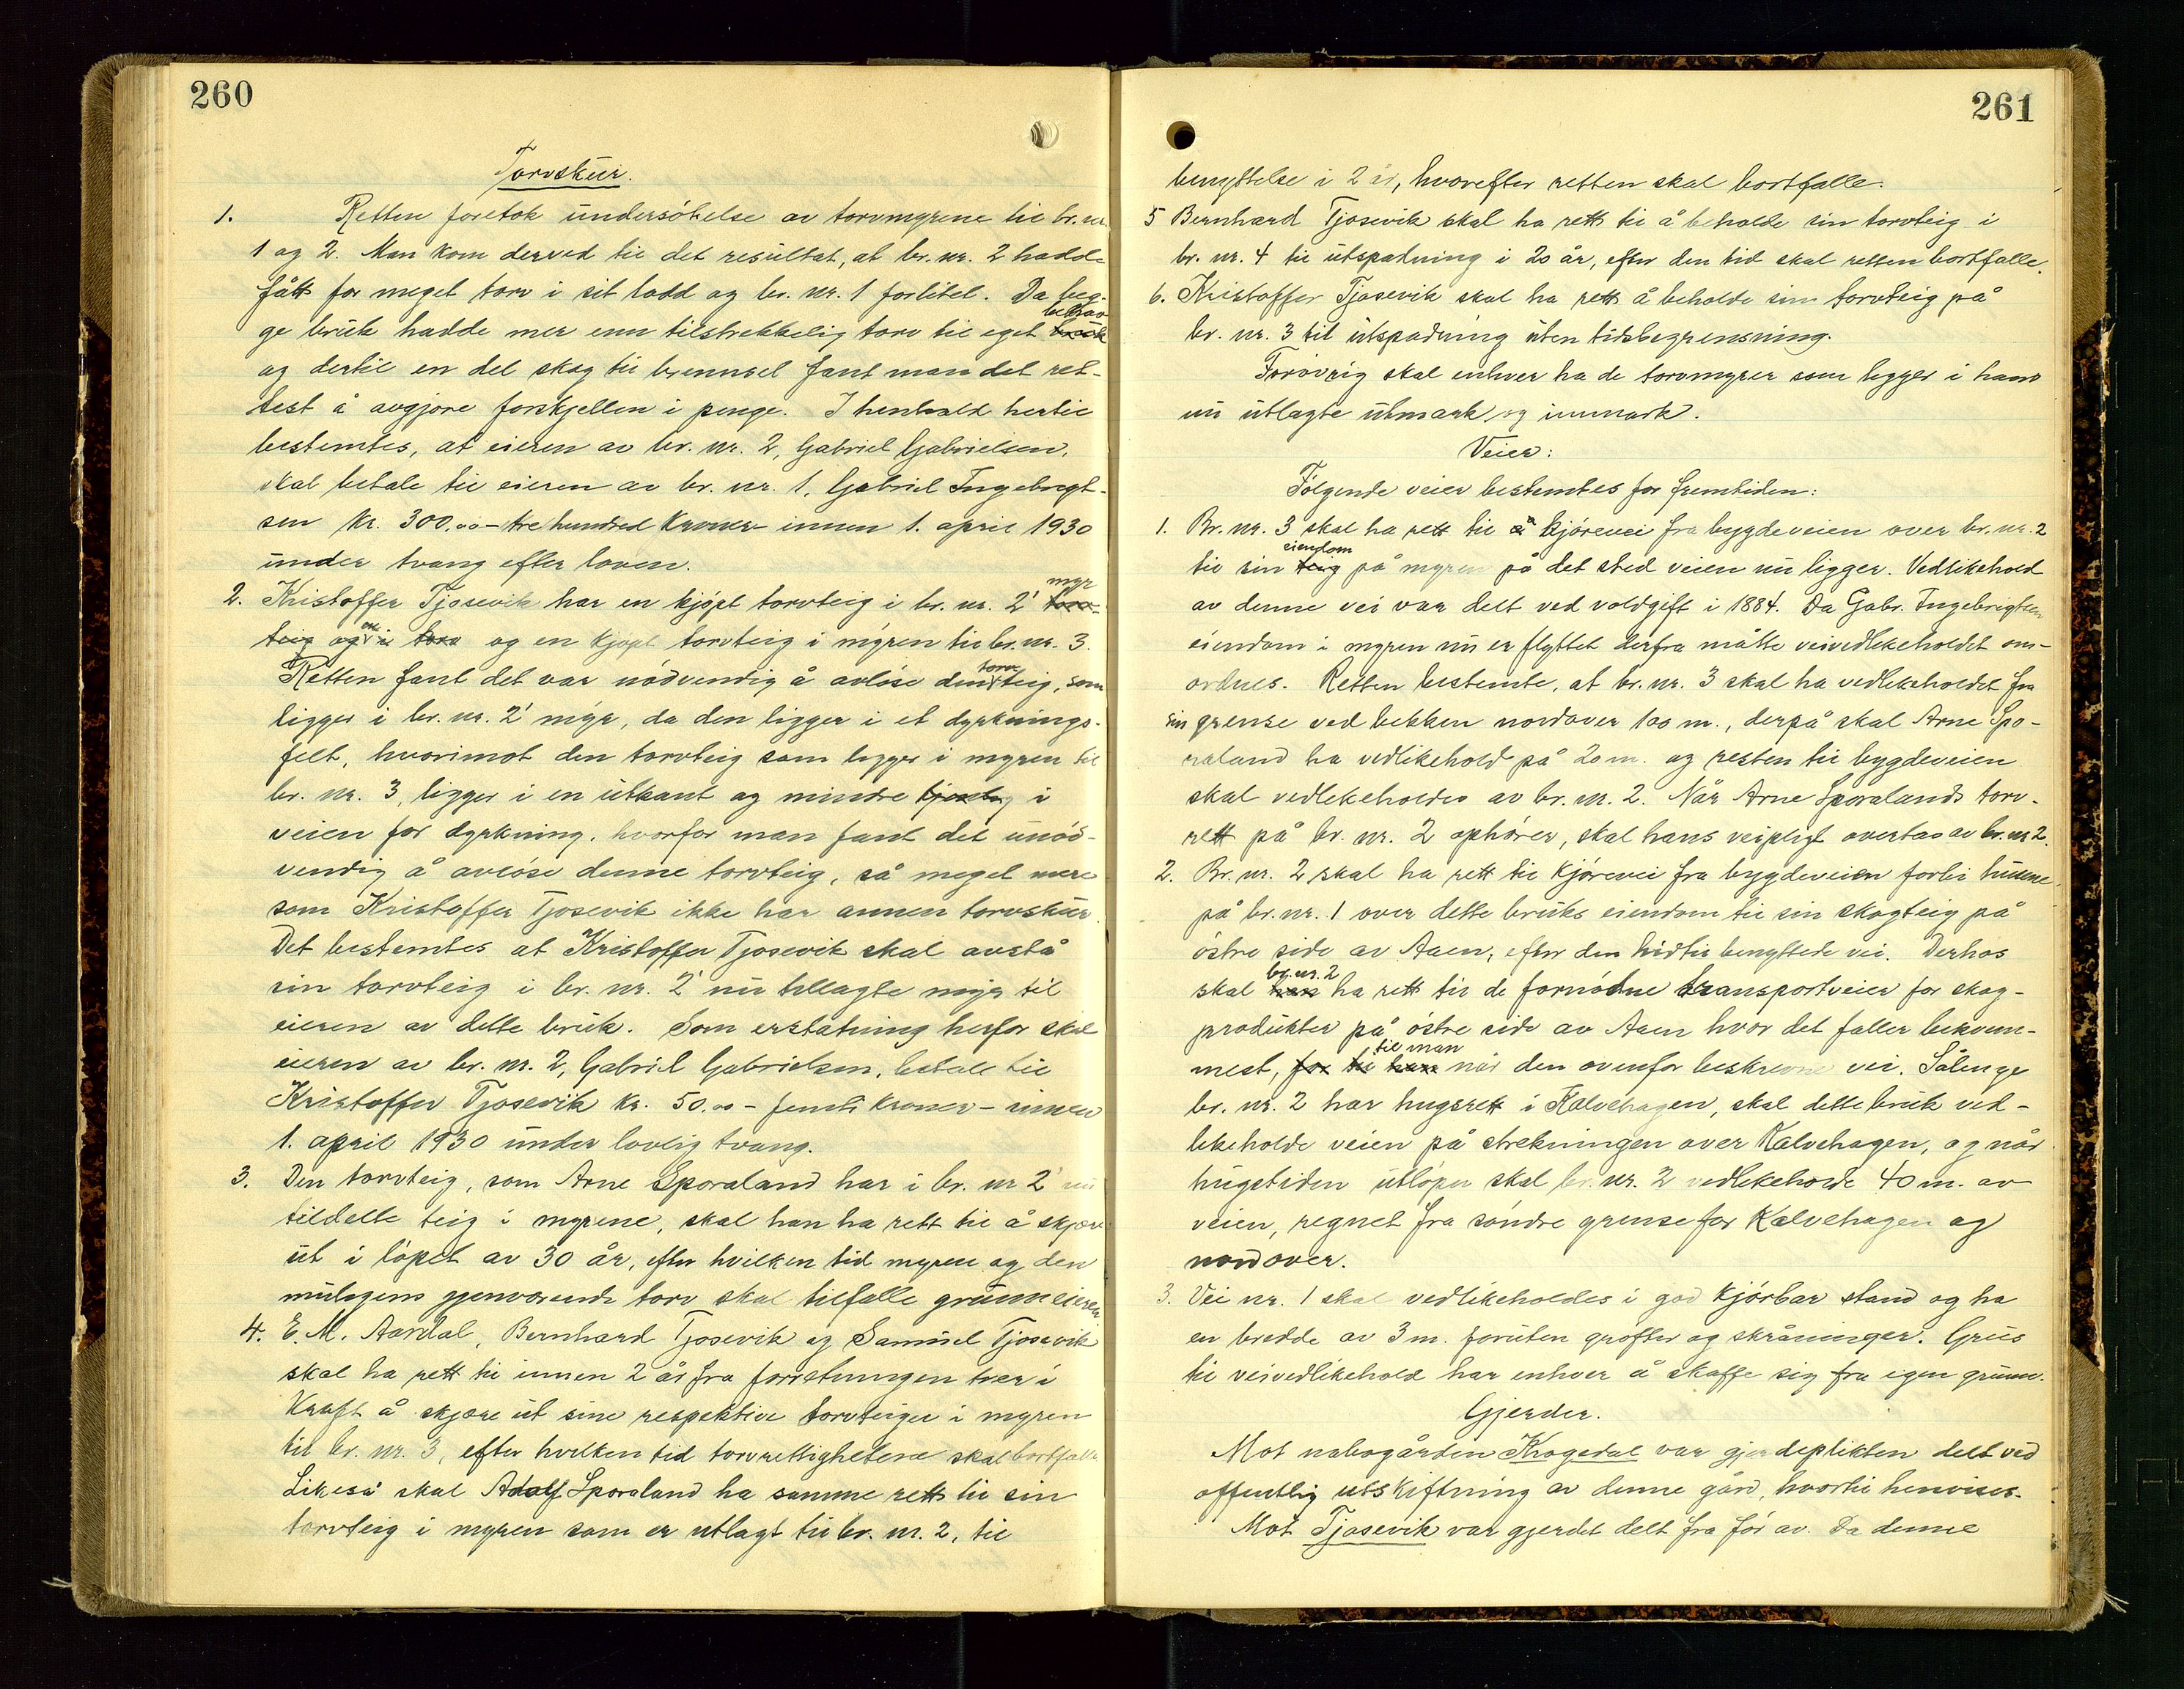 260
Torvskur.
1. Retten foretok undersökelse av torvmyrene til br. nr.
1 og 2. Man kom derved til det resultat, at br. nr. 2 hadde
fått for meget torv i sit lodd og br. nr. 1 forlitet. Da beg-
ge bruk hadde mer enn tilstrekkelig torv til eget behov
og dertil en del skog til brennsel fant man det ret-
test å avgjore forskjellen i penge. I henhold hertil
bestemtes, at eieren av br. nr. 2, Gabriel Gabrielsen,
skal betale til eieren av br. nr. 1, Gabriel Ingebregt-
sen kr. 300.00 - tre hundred kroner - innen 1. april 1930
under tvang efter loven.
2. Kristoffer Tjosevik har en kjöpt torvteig i br. nr. 2' myr
og en kjöpt torvteig i myren til br. nr. 3.
Retten fant det var nödvendig å avlöse den torvteig, som
ligger i br. nr. 2' myr, da den ligger i et dyrknings-
felt, hvorimot den torvteig som ligger i myren til
br. nr. 3, ligger i en utkant og mindre i
veien for dyrkning, hvorfor man fant det unöd-
vendig å avlöse denne torvteig, så meget mere
som Kristoffer Tjosevik ikke har annen torvskur.
Det bestemtes at Kristoffer Tjosevik skal avstå
sin torvteig i br. nr. 2' nu tillagte myr til
eieren av dette bruk. Som erstatning herfor skal
eieren av br. nr. 2, Gabriel Gabrielsen, betale til
Kristoffer Tjosevik kr. 50.00 - femti kroner - innen
1. april 1930 under lovlig tvang.
3. Den torvteig, som Arne Sporaland har i br. nr 2' nu
tildelte teig i myrene, skal han ha rett til å skjære
ut i löpet av 30 år, efter hvilken tid myren og den
muligens gjenværende torv skal tilfalle grunneieren
4. E. M. Aardal, Bernhard Tjosevik og Samuel Tjosevik
skal ha rett til innen 2 år fra forretningen trer i
kraft å skjære ut sine respektive torvteiger i myren
til br. nr. 3, efter hvilken tid torvrettighetene skal bortfalle
Likeså skal Adolf Sporaland ha samme rett til sin
torvteig i myren som er utlagt til br. nr. 2, til
261
benyttelse i 2 år, hvorefter retten skal bortfalle.
5 Bernhard Tjosevik skal ha rett til å beholde sin torvteig i
br. nr. 4 til utspadning i 20 år, efter den tid skal retten bortfalle.
6. Kristoffer Tjosevik skal ha rett å beholde sin torvteig på
br. nr. 3 til utspadning uten tidsbegrensning.
Forövrig skal enhver ha de torvmyrer som ligger i hans
nu utlagte utmark og innmark.
Veier:
Fölgende veier bestemtes for fremtiden:
1. Br. nr. 3 skal ha rett til kjörevei fra bygdeveien over br. nr. 2
til sin eiendom på myren på det sted veien nu ligger. Vedlikehold
av denne vei var delt ved voldgift i 1884. Da Gabr. Ingebrigtsen
eiendom i myren nu er flyttet derfra måtte veivedlikeholdet om-
ordnes. Retten bestemte, at br. nr. 3 skal ha vedlikeholdet fra
sin grense ved bekken nordover 100 m., derpå skal Arne Spo-
raland ha vedlikehold på 20 m. og resten til bygdeveien
skal vedlikeholdes av br. nr. 2. Når Arne Sporalands torv-
rett på br. nr. 2 ophörer, skal hans veipligt overtas av br. nr 2.
2. Br. nr. 2 skal ha rett til kjörevei fra bygdeveien forbi husene
på br. nr. 1 over dette bruks eiendom til sin skogteig på
östre side av Aaen, efter den hidtil benyttede vei. Derhos
skal br. nr. 2 ha rett til de fornödne transportveier for skog-
produkter på östre side av Aaen hvor det faller bekvem-
mest, til man når den ovenfor beskrevne vei. Sålenge
br. nr. 2 har hugsrett i Kalvehagen, skal dette bruk ved-
likeholde veien på strekningen over Kalvehagen, og når
hugstiden utlöper skal br. nr. 2 vedlikeholde 40 m. av
veien, regnet fra söndre grense for Kalvehagen og
nordover.
3. Vei nr. 1 skal vedlikeholdes i god kjörbar stand og ha
en bredde av 3 m. foruten gröfter og skråninger. Grus
til veivedlikehold har enhver å skaffe sig fra egen grunn.
Gjerder.
Mot nabogården Krogedal var gjerdeplikten delt ved
offentlig utskiftning av denne gård, hvortil henvises.
Mot Tjosevik var gjerdet delt fra för av. Da denne